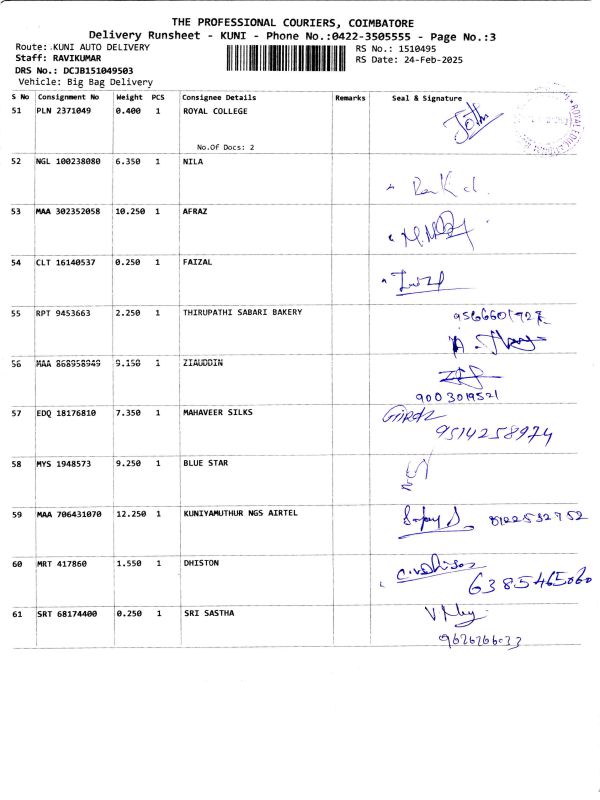 THE PROFESSIONAL COURIERS, COIMBATORE
Delivery Runsheet - KUNI - Phone No.:0422-3505555 - Page No.:3
Route: KUNI AUTO DELIVERY
RS No.: 1510495
Staff: RAVIKUMAR
RS Date: 24-Feb-2025
DRS No.: DCJB151049503
Vehicle: Big Bag Delivery
S No Consignment No Weight PCS Consignee Details Remarks Seal & Signature
51 PLN 2371049 0.400 1 ROYAL COLLEGE
No.Of Docs: 2
52 NGL 100238080 6.350 1 NILA
53 MAA 302352058 10.250 1 AFRAZ
54 CLT 16140537 0.250 1 FAIZAL
55 RPT 9453663 2.250 1 THIRUPATHI SABARI BAKERY
56 MAA 868958949 9.150 1 ZIAUDDIN
9003019521
57 EDQ 18176810 7.350 1 MAHAVEER SILKS
9514258974
58 MYS 1948573 9.250 1 BLUE STAR
59 MAA 706431070 12.250 1 KUNIYAMUTHUR NGS AIRTEL
8122532752
60 MRT 417860 1.550 1 DHISTON
6385465060
61 SRT 68174400 0.250 1 SRI SASTHA